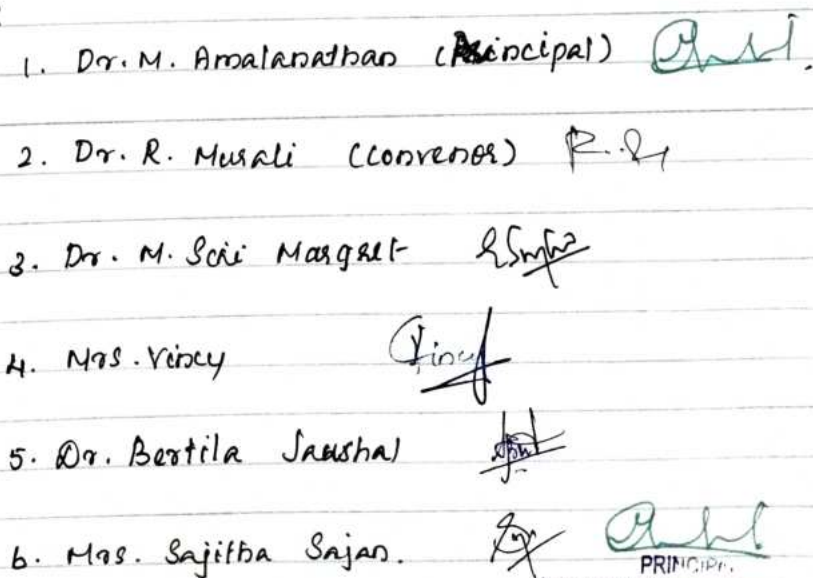 1. Dr. M. Amalanathan (Principal)
2. Dr. R. Murali (Convenor)
3. Dr. M. Margret
4. Mrs. Vincy Vincy
5. Dr. Bertila
6. Mrs. Sajitha Sajan.
PRINCIPAL